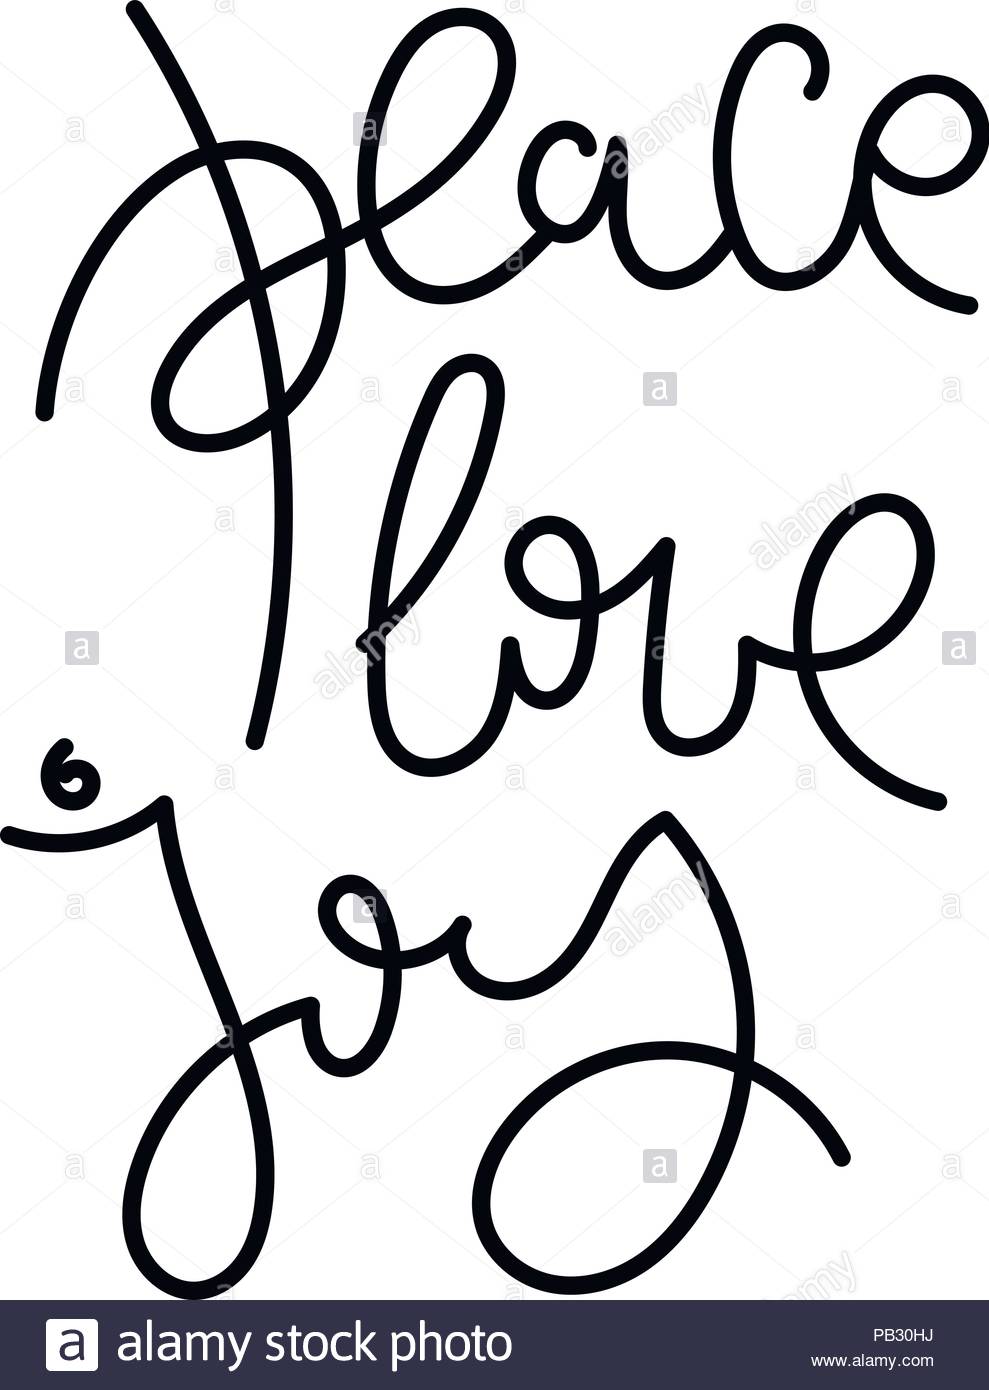 peace
love
joy
alamy stock photo
PB30HJ
www.alamy.com